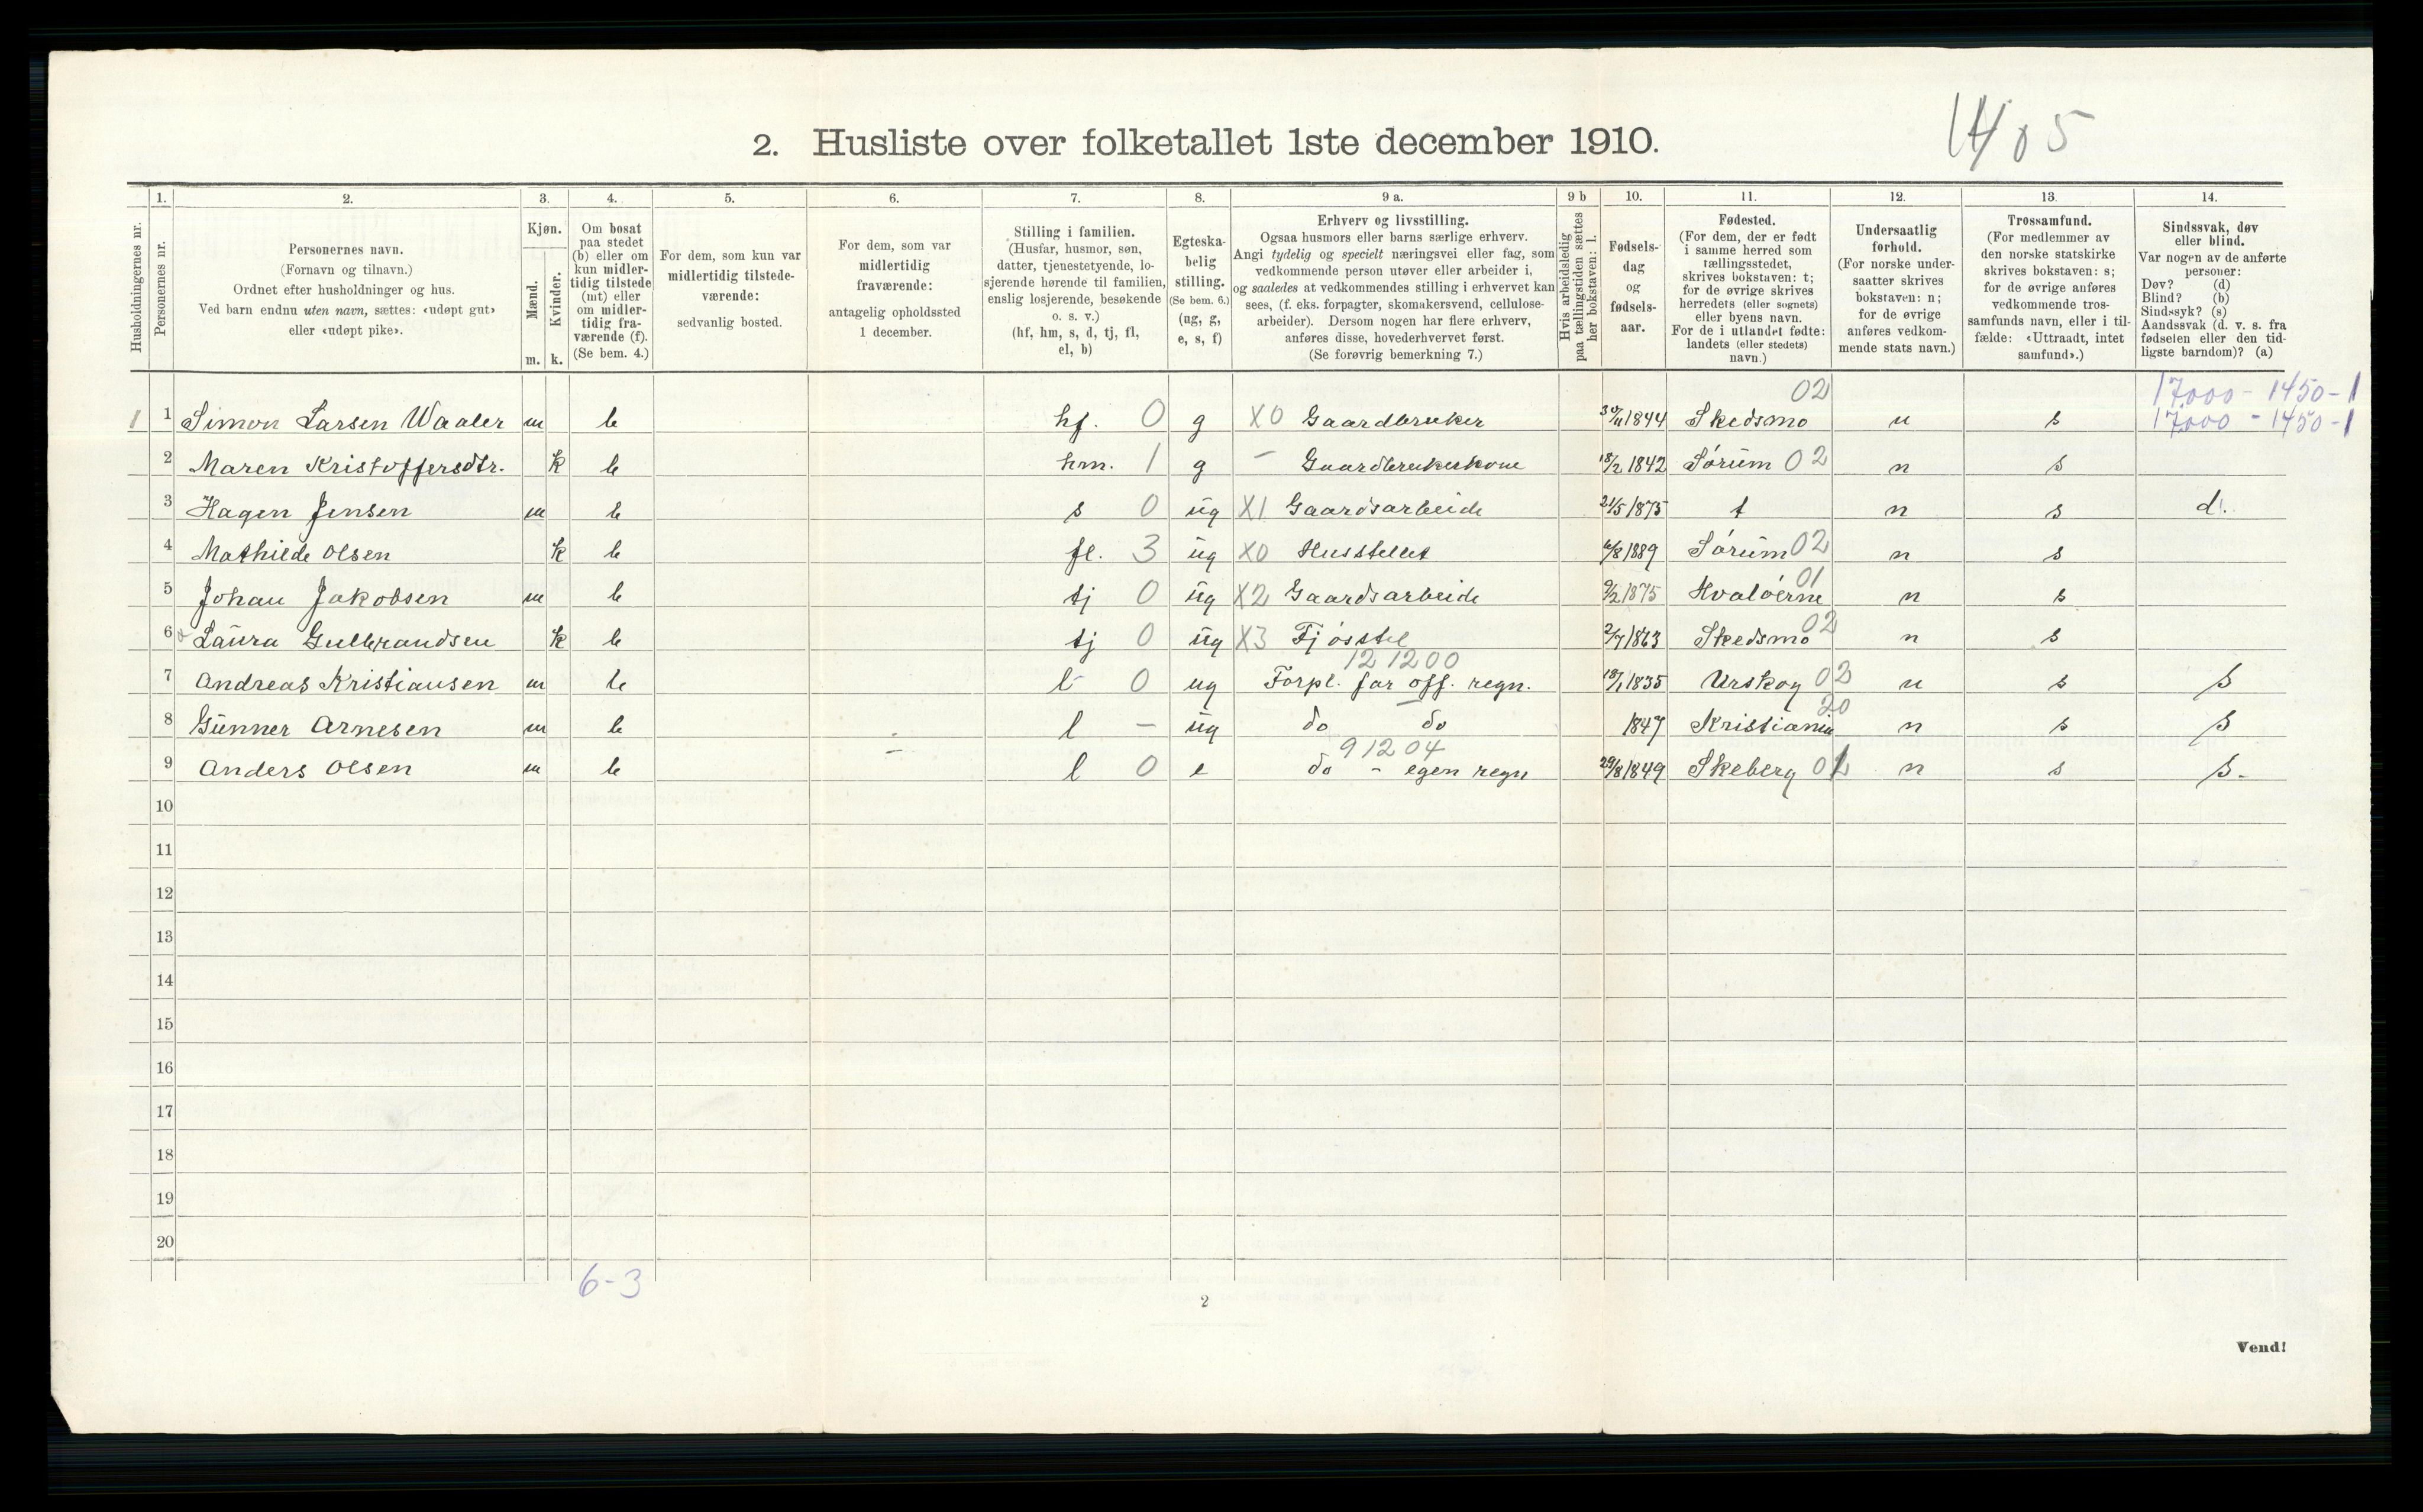 2. Husliste over folketallet 1ste december 1910.
1405
1. 2. 3. 4. 5. 6. 7. 8. 9 a. 9 b 10. 11. 12. 13. 14.
Husholdningernes nr.
Personernes nr.
Personernes navn.
(Fornavn og tilnavn.)
Ordnet efter husholdninger og hus.
Ved barn endnu uten navn, sættes: «udøpt gut»
eller «udøpt pike».
Kjøn.
Mænd.
Kvinder.
m. k.
Om bosat
paa stedet
(b) eller om
kun midler-
tidig tilstede
(mt) eller
om midler-
tidig fra-
værende (f).
(Se bem. 4.)
For dem, som kun var
midlertidig tilstede-
værende:
sedvanlig bosted.
For dem, som var
midlertidig
fraværende:
antagelig opholdssted
1 december.
Stilling i familien.
(Husfar, husmor, søn,
datter, tjenestetyende, lo-
sjerende hørende til familien,
enslig losjerende, besøkende
o. s. v.)
(hf, hm, s, d, tj, fl,
el, b)
Egteska-
belig
stilling.
(Se bem. 6.)
(ug, g,
e, s, f)
Erhverv og livsstilling.
Ogsaa husmors eller barns særlige erhverv.
Angi tydelig og specielt næringsvei eller fag, som
vedkommende person utøver eller arbeider i,
og saaledes at vedkommendes stilling i erhvervet kan
sees, (f. eks. forpagter, skomakersvend, cellulose-
arbeider). Dersom nogen har flere erhverv,
anføres disse, hovederhvervet først.
(Se forøvrig bemerkning 7.)
Hvis arbeidsledig
paa tællingstiden sættes
her bokstaven: l.
Fødsels-
dag
og
fødsels-
aar.
Fødested.
(For dem, der er født
i samme herred som
tællingsstedet,
skrives bokstaven: t;
for de øvrige skrives
herredets (eller sognets)
eller byens navn.
For de i utlandet fødte:
landets (eller stedets)
navn.)
Undersaatlig
forhold.
(For norske under-
saatter skrives
bokstaven: n;
for de øvrige
anføres vedkom-
mende stats navn.)
Trossamfund.
(For medlemmer av
den norske statskirke
skrives bokstaven: s;
for de øvrige anføres
vedkommende tros-
samfunds navn, eller i til-
fælde: «Uttraadt, intet
samfund».)
Sindssvak, døv
eller blind.
Var nogen av de anførte
personer:
Døv? (d)
Blind? (b)
Sindssyk? (s)
Aandssvak (d. v. s. fra
fødselen eller den tid-
ligste barndom)? (a)
02 17,000 - 1450 - 1
1 1 Simon Larsen Waaler m b hf. 0 g X0 Gaardbruker 30/11 1844 Skedsmo n s 17,000 - 1450 - 1
2 Maren Kristoffersdtr. k b hm. 1 g - Gaardbrukerkone 18/2 1842 Sørum 02 n s
3 Hagen Jensen m b s 0 ug X1 Gaardsarbeide 21/5 1875 t n s d.
4 Mathilde Olsen k b fl. 3 ug X0 Husstellet 6/8 1889 Sørum 02 n s
5 Johan Jakobsen m b tj 0 ug X2 Gaardsarbeide 9/2 1875 Hvaløerne 01 n s
6 Laura Gulbrandsen k b tj 0 ug X3 Fjøsstel 2/7 1863 Skedsmo 02 n s
121200
7 Andreas Kristiansen m b l 0 ug Forpl. for off. regn. 18/1 1835 Urskog 02 n s s
20
8 Gunner Arnesen m b l - ug do do 1847 Kristiania n s s
91204
9 Anders Olsen m b l 0 e do - egen regn 29/8 1849 Skeberg 02 n s s.
10
11
12
13
14
15
16
17
18
19
20
6-3
2
Vend!